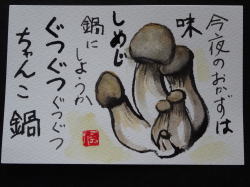 今夜のおかずは
味
しめじ
鍋に
しようか
ぐつぐつぐつぐつ
ちゃんこ鍋